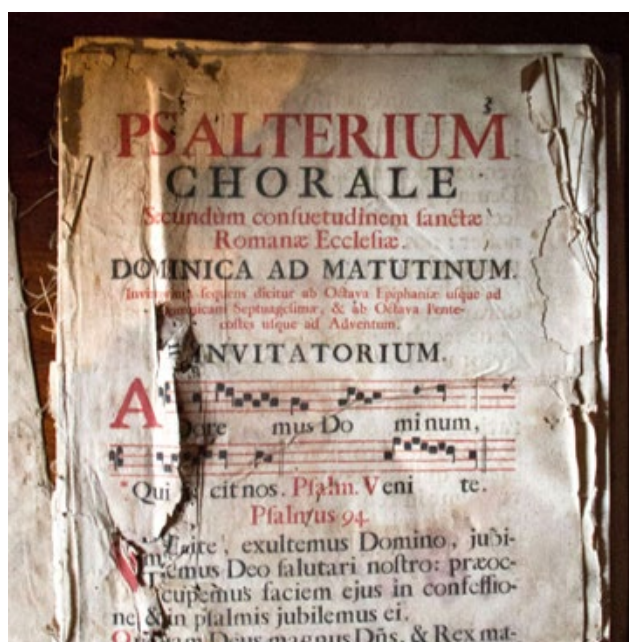 PSALTERIUM
CHORALE
Secundùm conſuetudinem ſanctæ
Romanæ Eccleſiæ.
DOMINICA AD MATUTINUM.
ſequens dicitur ab Octava Epiphaniæ uſque ad
Septuageſimæ, & ab Octava Pente-
coſtes uſque ad Adventum.
INVITATORIUM.
A
Dore mus Do minum,
* Qui cit nos. Pſalm. Veni te.
Pſalmus 94.
Venite, exultemus Domino, jubi-
lemus Deo ſalutari noſtro: præoc-
cupemus faciem ejus in confeſſio-
ne, & in pſalmis jubilemus ei.
Deus magnus Dñs, & Rex ma-